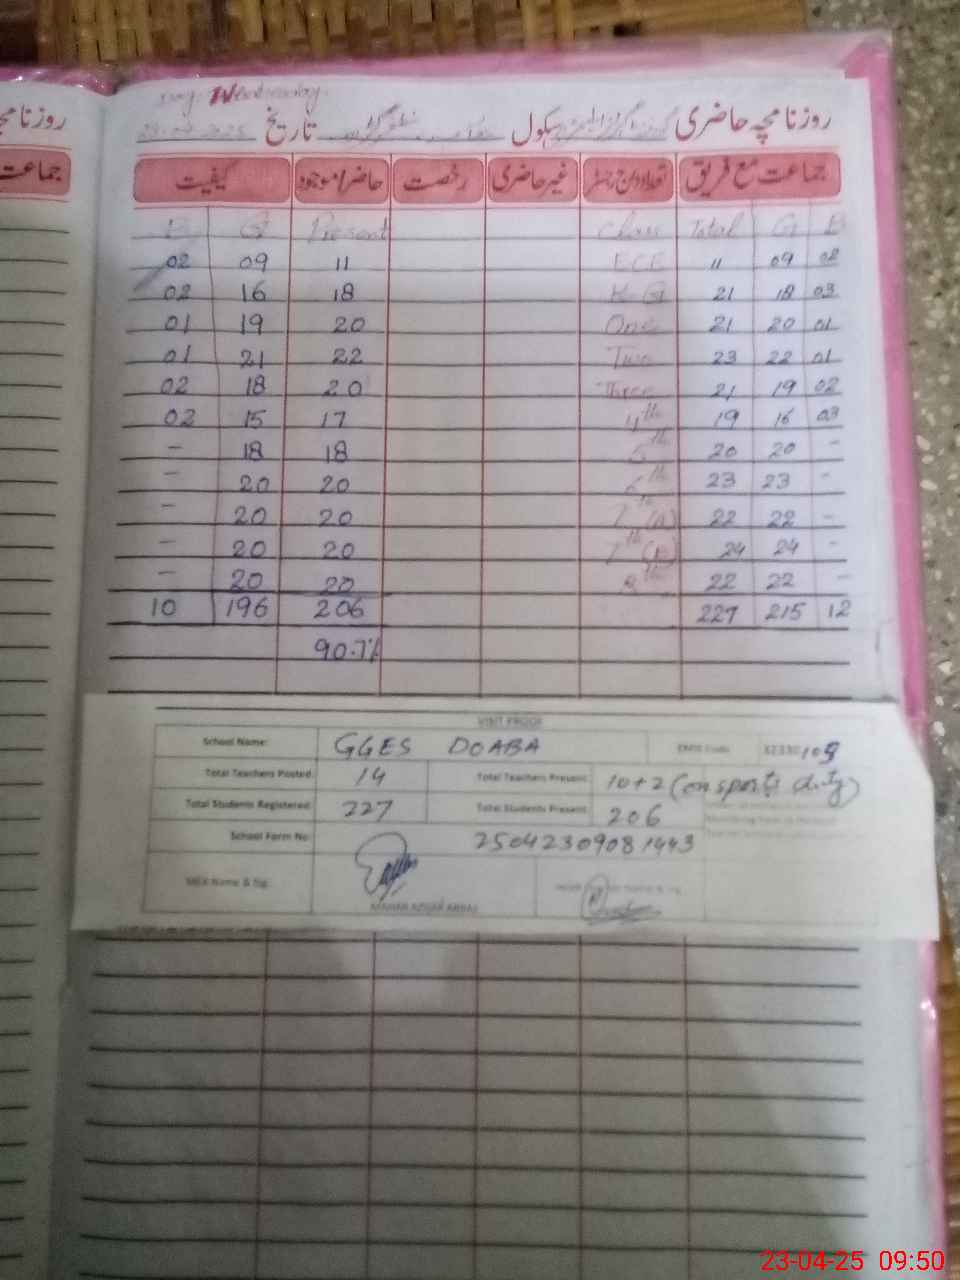 Day: Wednesday
روزنامچہ حاضری سکول تاریخ 23-04-2025
جماعت مع فریق تعداد درج رجسٹر غیر حاضری رخصت حاضر/موجود کیفیت
B G Present Class Total G B
02 09 11 ECE 11 09 02
02 16 18 K.G 21 18 03
01 19 20 One 21 20 01
01 21 22 Two 23 22 01
02 18 20 Three 21 19 02
02 15 17 4th 19 16 03
- 18 18 5th 20 20 -
- 20 20 6th 23 23 -
- 20 20 7th (A) 22 22 -
- 20 20 7th (B) 24 24 -
- 20 20 8th 22 22 -
10 196 206 227 215 12
90.7%
VISIT PROOF
School Name: GGES DOABA EMIS Code
Total Teachers Posted: 14 Total Teachers Present: 10+2 (on sports duty)
Total Students Registered: 227 Total Students Present: 206
School Form No: 25042309081443
MEA Name & Sig:
روزنامچہ
جماعت
23-04-25 09:50